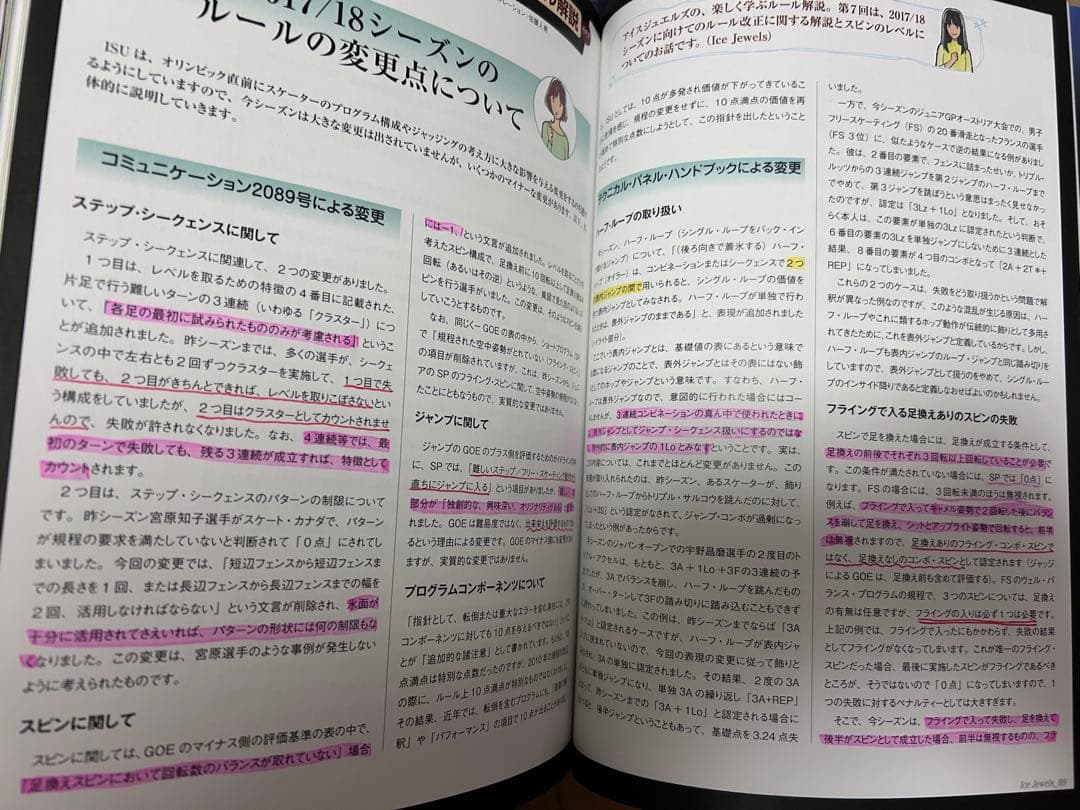 2017/18シーズンの
ルールの変更点について
ISUは、オリンピック直前にスケーターのプログラム構成やジャッジングの考え方に大きな影響を与える変更をする
るようにしていますので、今シーズンは大きな変更は出されていませんが、いくつかのマイナーな変更があります。
体的に説明していきます。
コミュニケーション2089号による変更
ステップ・シークェンスに関して
ステップ・シークェンスに関連して、2つの変更がありました。
1つ目は、レベルを取るための特徴の4番目に記載された、
片足で行う難しいターンの3連続（いわゆる「クラスター」）につ
いて、「各足の最初に試みられたもののみが考慮される」というこ
とが追加されました。昨シーズンまでは、多くの選手が、シークェ
ンスの中で左右とも2回ずつクラスターを実施して、1つ目で失
敗しても、2つ目がきちんとできれば、レベルを取りこぼさないとい
う構成をしていましたが、2つ目はクラスターとしてカウントされませ
んので、失敗が許されなくなりました。なお、4連続等では、最
初のターンで失敗しても、残る3連続が成立すれば、特徴として
カウントされます。
2つ目は、ステップ・シークェンスのパターンの制限について
です。昨シーズン宮原知子選手がスケート・カナダで、パターン
が規程の要求を満たしていないと判断されて「0点」にされてし
まいました。今回の変更では、「短辺フェンスから短辺フェンスま
での長さを1回、または長辺フェンスから長辺フェンスまでの幅を
2回、活用しなければならない」という文言が削除され、氷面が
十分に活用されてさえいれば、パターンの形状には何の制限もな
くなりました。この変更は、宮原選手のような事例が発生しない
ように考えられたものです。
スピンに関して
スピンに関しては、GOEのマイナス側の評価基準の表の中で、
「足換えスピンにおいて回転数のバランスが取れていない」場合
には−1、」という文言が追加されました。
考えたスピン構成で、足換え前に10回転以上して
回転（あるいはその逆）というような、
ピンを行う選手がいました。この変更は、そのような
していこうとするものです。
なお、同じくGOEの表の中から、ショートプログラム（SP）
で「規程された空中姿勢がとれていない（フライング・スピン）」
の項目が削除されていますが、これは、昨シーズンから、シニ
アのSPのフライング・スピンに関して、空中姿勢の規程がなくなっ
たことにともなうもので、実質的な変更ではありません。
ジャンプに関して
ジャンプのGOEのプラス側を評価するためのガイドラインの中
に、SPでは、「難しいステップ/フリー・スケーティング動作から
直ちにジャンプに入る」という項目がありましたが、
部分が「独創的な、興味深い、オリジナリティがある
れました。GOEは難易度ではなく、出来栄えを評価するもので
あるという理由による変更です。GOEのマイナス側にも変更があり
ますが、実質的な変更ではありません。
プログラムコンポーネンツについて
「指針として、転倒または重大なエラーを含む演技には、どの
コンポーネンツに対しても10点を与えるべきではない」というこ
とが「追加的な諸注意」として書かれています。もともと、10
点満点は特別な点数だったのですが、2010年の規程の改正
の際に、ルール上10点満点が特別なものではなくなりました。
その結果、近年では、転倒を含むプログラムにも、「音楽の解
釈」や「パフォーマンス」の項目で10点が出ることがあり
アイスジュエルズの、楽しく学ぶルール解説。第7回は、2017/18
シーズンに向けてのルール改正に関する解説とスピンのレベルに
ついてのお話です。(Ice Jewels)
ISUとしては、10点が多発され価値が下がってきているこ
とに危惧を感じ、規程の変更をせずに、10点満点の価値を再
び極めて特別な点数にしようとして、この指針を出したということ
テクニカル・パネル・ハンドブックによる変更
ハーフ・ループの取り扱い
シーズン、ハーフ・ループ（シングル・ループをバック・イン
で降りるジャンプ）について、「（後ろ向きで着氷する）ハーフ・
ループ（オイラー）は、コンビネーションまたはシークェンスで2つ
の表内ジャンプの間で用いられると、シングル・ループの価値を
もつ表内ジャンプとしてみなされる。ハーフ・ループが単独で行わ
れたときは、表外ジャンプのままである」と、表現が追加されました
（ハイライト部分）。
ここでいう表内ジャンプとは、基礎値の表にあるという意味で
対象になるジャンプのことで、表外ジャンプとはその表にはない飾
としてのホップやジャンプという意味です。すなわち、ハーフ・
ループは表外ジャンプなので、意図的に行われた場合にはコー
ルされませんが、3連続コンビネーションの真ん中で使われたときに
は、表外ジャンプとしてジャンプ・シークェンス扱いにするのではな
く、例外的に表内ジャンプの1Loとみなすということです。実は、
この内容については、これまでとほとんど変更がありません。この
表現が取り入れられたのは、昨シーズン、あるスケーターが、飾り
としてのハーフ・ループからトリプル・サルコウを跳んだのに対して、
「1Lo+3S」という認定がなされて、ジャンプ・コンボが過剰になっ
てしまったという例があったからです。
今シーズンのジャパンオープンでの宇野昌磨選手の2度目のト
リプル・アクセルは、もともと、3A+1Lo+3Fの3連続の予
定でしたが、3Aでバランスを崩し、ハーフ・ループを跳んだもの
の、オーバー・ターンして3Fの踏み切りに踏み込むこともできず
に終わってしまいました。この例は、昨シーズンまでならば「3A
+1Lo」と認定されるケースですが、ハーフ・ループが表内ジャ
ンプに挟まれていないので、今回の表現の変更に従って飾りと
みなされ、3Aの単独に認定されました。その結果、2度の3A
がともに単独ジャンプになり、単独3Aの繰り返し「3A+REP」
となって、昨シーズンまでの「3A+1Lo」と認定される場合に
比べると、後半ジャンプということもあって、基礎点を3.24点失
いました。
一方で、今シーズンのジュニアGPオーストリア大会での、男子
フリースケーティング（FS）の20番滑走となったフランスの選手
（FS3位）に、似たようなケースで逆の結果になる例がありまし
た。彼は、2番目の要素で、フェンスに詰まったせいか、トリプル・
ルッツからの3連続ジャンプを第2ジャンプのハーフ・ループまで
でやめて、第3ジャンプを跳ぼうという意思はまったく見せなかっ
たのですが、認定は「3Lz+1Lo」となりました。そして、おそ
らく本人は、この要素が単独の3Lzに認定されたという判断で、
6番目の要素の3Lzを単独ジャンプにしないために3連続とした
結果、8番目の要素が4つ目のコンボとなって「2A+2T*+
REP」になってしまいました。
これらの2つのケースは、失敗をどう取り扱うかという問題で解
釈が異なった例なのですが、このような混乱が生じる原因は、ハー
フ・ループやこれに類するホップ動作が伝統的に飾りとして多用さ
れてきたために、これを表外ジャンプと定義しているからです。しかし、
ハーフ・ループも表内ジャンプのループ・ジャンプと同じ踏み切りを
していますので、表外ジャンプとして扱うのをやめて、シングル・ルー
プのインサイド降りであると定義しなおせばよいのかもしれません。
フライングで入る足換えありのスピンの失敗
スピンで足を換えた場合には、足換えが成立する条件として、
足換えの前後でそれぞれ3回転以上回転していることが必要で
す。この条件が満たされていない場合には、SPでは「0点」に
なります。FSの場合には、3回転未満のほうは無視されます。
例えば、フライングで入ってキャメル姿勢で2回転した後にバラン
スを崩して足を換え、シットとアップライト姿勢で回転すると、前半
は無視されますので、足換えありのフライング・コンボ・スピンで
はなく、足換えなしのコンボ・スピンとして認定されます（ジャッジ
によるGOEは、足換え前も含めて評価する）。FSのウェル・バ
ランス・プログラムの規程で、3つのスピンについては、足換え
の有無は任意ですが、フライングの入りは必ず1つは必要です。
上記の例では、フライングで入ったにもかかわらず、失敗の結果
としてフライングがなくなってしまいます。これが唯一のフライング・
スピンだった場合、最後に実施したスピンがフライングであるべき
ところが、そうではないので「0点」になってしまいますので、1
つの失敗に対するペナルティーとしては大きすぎます。
そこで、今シーズンは、フライングで入って失敗し、足を換えて
後半がスピンとして成立した場合、前半は無視するものの、フラ
Ice Jewels_89